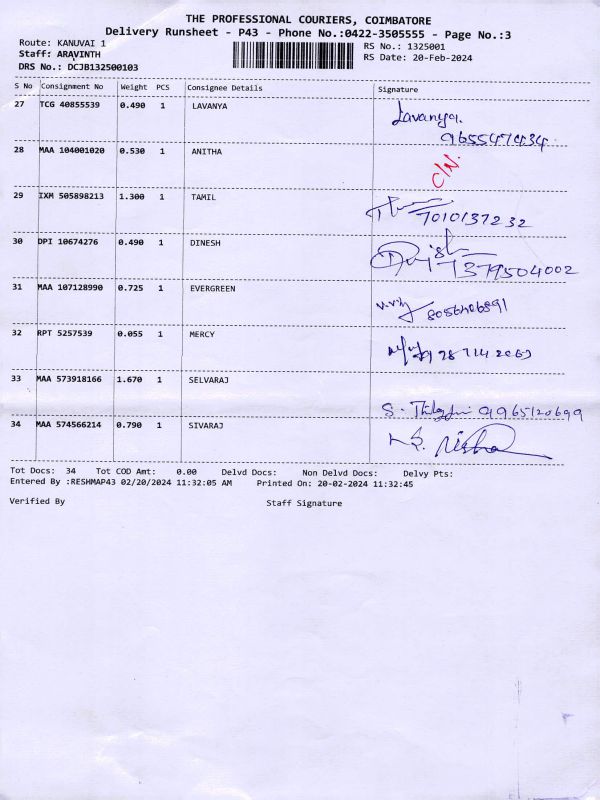 THE PROFESSIONAL COURIERS, COIMBATORE
Delivery Runsheet - P43 - Phone No.:0422-3505555 - Page No.:3
Route: KANUVAI 1
RS No.: 1325001
Staff: ARAVINTH
RS Date: 20-Feb-2024
DRS No.: DCJB132500103
S No Consignment No Weight PCS Consignee Details Signature
27 TCG 40855539 0.490 1 LAVANYA Lavanya.
28 MAA 104001020 0.530 1 ANITHA
29 IXM 505898213 1.300 1 TAMIL 7010137232
30 DPI 10674276 0.490 1 DINESH 7379504002
31 MAA 107128990 0.725 1 EVERGREEN
32 RPT 5257539 0.055 1 MERCY
33 MAA 573918166 1.670 1 SELVARAJ S. 9965120699
34 MAA 574566214 0.790 1 SIVARAJ
Tot Docs: 34 Tot COD Amt: 0.00 Delvd Docs: Non Delvd Docs: Delvy Pts:
Entered By :RESHMAP43 02/20/2024 11:32:05 AM Printed On: 20-02-2024 11:32:45
Verified By Staff Signature